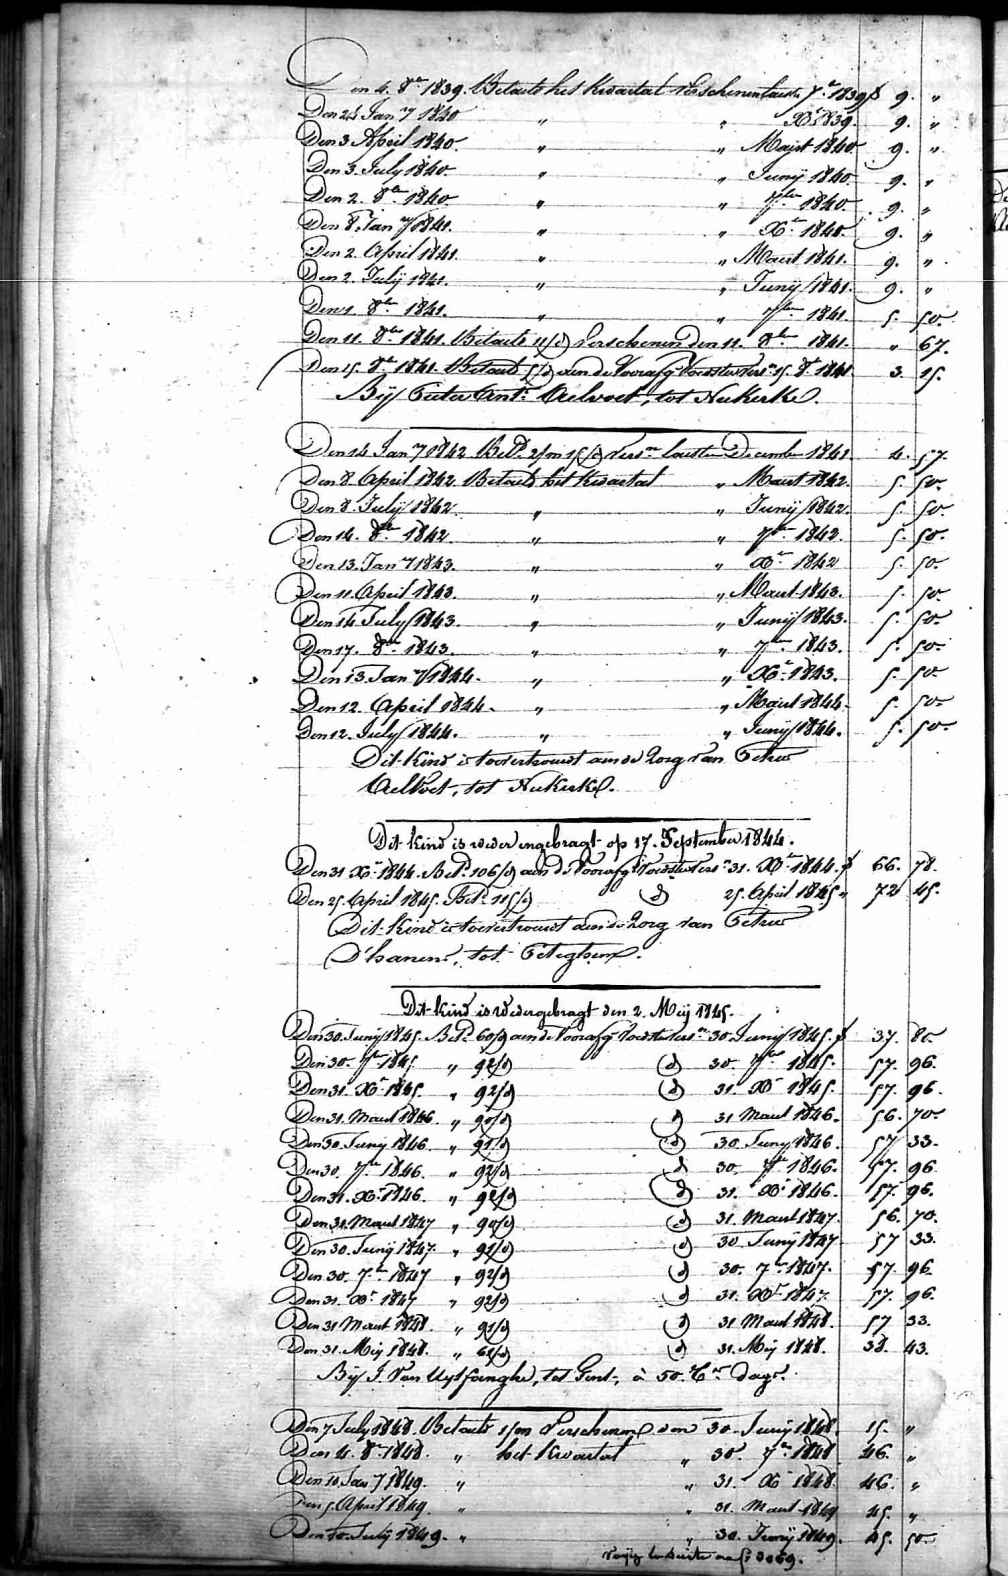 Den 4. 8er 1839. Betaald het Kwartaal verschenen laaste 7er 1839 f 9. "
Den 24 Jan 7 1840 " " Xr 1839. 9. "
Den 3 April 1840 " " Maart 1840 9. "
Den 3. July 1840 " " Junij 1840 9. "
Den 2. 8er 1840 " " 7er 1840. 9. "
Den 8. Jan 7 1841. " " Xr 1840. 9. "
Den 2. April 1841. " " Maart 1841. 9. "
Den 2. July 1841. " " Junij 1841. 9. "
Den 1. 8er 1841. " " 7er 1841. 5. 50.
Den 11. 8er 1841. Betaald 11/d Verschenen den 11. 8er 1841. " 67.
Den 15. 8r 1841. Betaald 5/d aan de Voorafg Voedster vers. 15. 8r 1841 3. 15.
Bij Pieter Ant. Aelvoet, tot Nukerke.
Den 14 Jan 7 1842 Betd. 2/m 15/d Versn laasten December 1841 4. 57.
Den 8. April 1842. Betaald het Kwartaal " Maart 1842. 5. 50.
Den 8. July 1842. " " Junij 1842. 5. 50.
Den 14. 8er 1842. " " 7er 1842. 5. 50.
Den 13. Jan 7 1843. " " Xr 1842 5. 50.
Den 11. April 1843. " " Maart 1843. 5. 50.
Den 14 July 1843. " " Junij 1843. 5. 50.
Den 17. 8er 1843. " " 7er 1843. 5. 50.
Den 13. Jan 7 1844. " " Xr 1843. 5. 50.
Den 12. April 1844. " " Maart 1844. 5. 50.
Den 12. July 1844. " " Junij 1844. 5. 50.
Dit kind is toevertrouwd aan de Zorg van Petrus
Aelvoet, tot Nukerke.
Dit kind is weder ingebragt op 17. September 1844.
Den 31 Xr 1844. Betd. 106/d aan de Voorafg Voedster vers. 31. Xr 1844. f 66. 78.
Den 25. April 1845. Betd. 115/d d 25. April 1845 " 72 45.
Dit kind is toevertrouwd aan de Zorg van Petrus
D'hanens, tot Peteghem.
Dit kind is wedergebragt den 2. Meij 1845.
Den 30. Junij 1845. Betd. 60/d aan de Voorafg Voedster vers. 30. Junij 1845. f 37. 80.
Den 30. 7er 1845 " 92/d d 30. 7er 1845. 57. 96.
Den 31. Xr 1845. " 92/d d 31. Xr 1845. 57. 96.
Den 31. Maart 1846. " 90/d d 31 Maart 1846. 56. 70
Den 30. Junij 1846. " 91/d d 30. Junij 1846. 57 33.
Den 30. 7er 1846. " 92/d d 30. 7er 1846. 57. 96.
Den 31. Xr 1846. " 92/d d 31. Xr 1846. 57. 96.
Den 31. Maart 1847 " 90/d d 31. Maart 1847. 56. 70.
Den 30. Junij 1847. " 91/d d 30 Junij 1847 57 33.
Den 30. 7er 1847 " 92/d d 30. 7er 1847. 57. 96.
Den 31. Xr 1847 " 92/d d 31. Xr 1847. 57. 96.
Den 31 Maart 1848. " 91/d d 31 Maart 1848. 57 33.
Den 31. Mey 1848. " 61/d d 31. Mey 1848. 38. 43.
Bij J. Van Uytfanghe, tot Gent, à 50. Cn Dags.
Den 7 July 1848. Betaald 1/m Verschenen den 30. Junij 1848. 15. "
Den 4. 8r 1848. " het Kwartaal " 30. 7r 1848 46. "
Den 10. Jan 7 1849. " " 31. Xr 1848 46. "
Den 5. April 1849 " " 31. Maart 1849 45. "
Den 10. July 1849. " " 30. Junij 1849. 45. 50.
Voyez la suite au f° 3069.